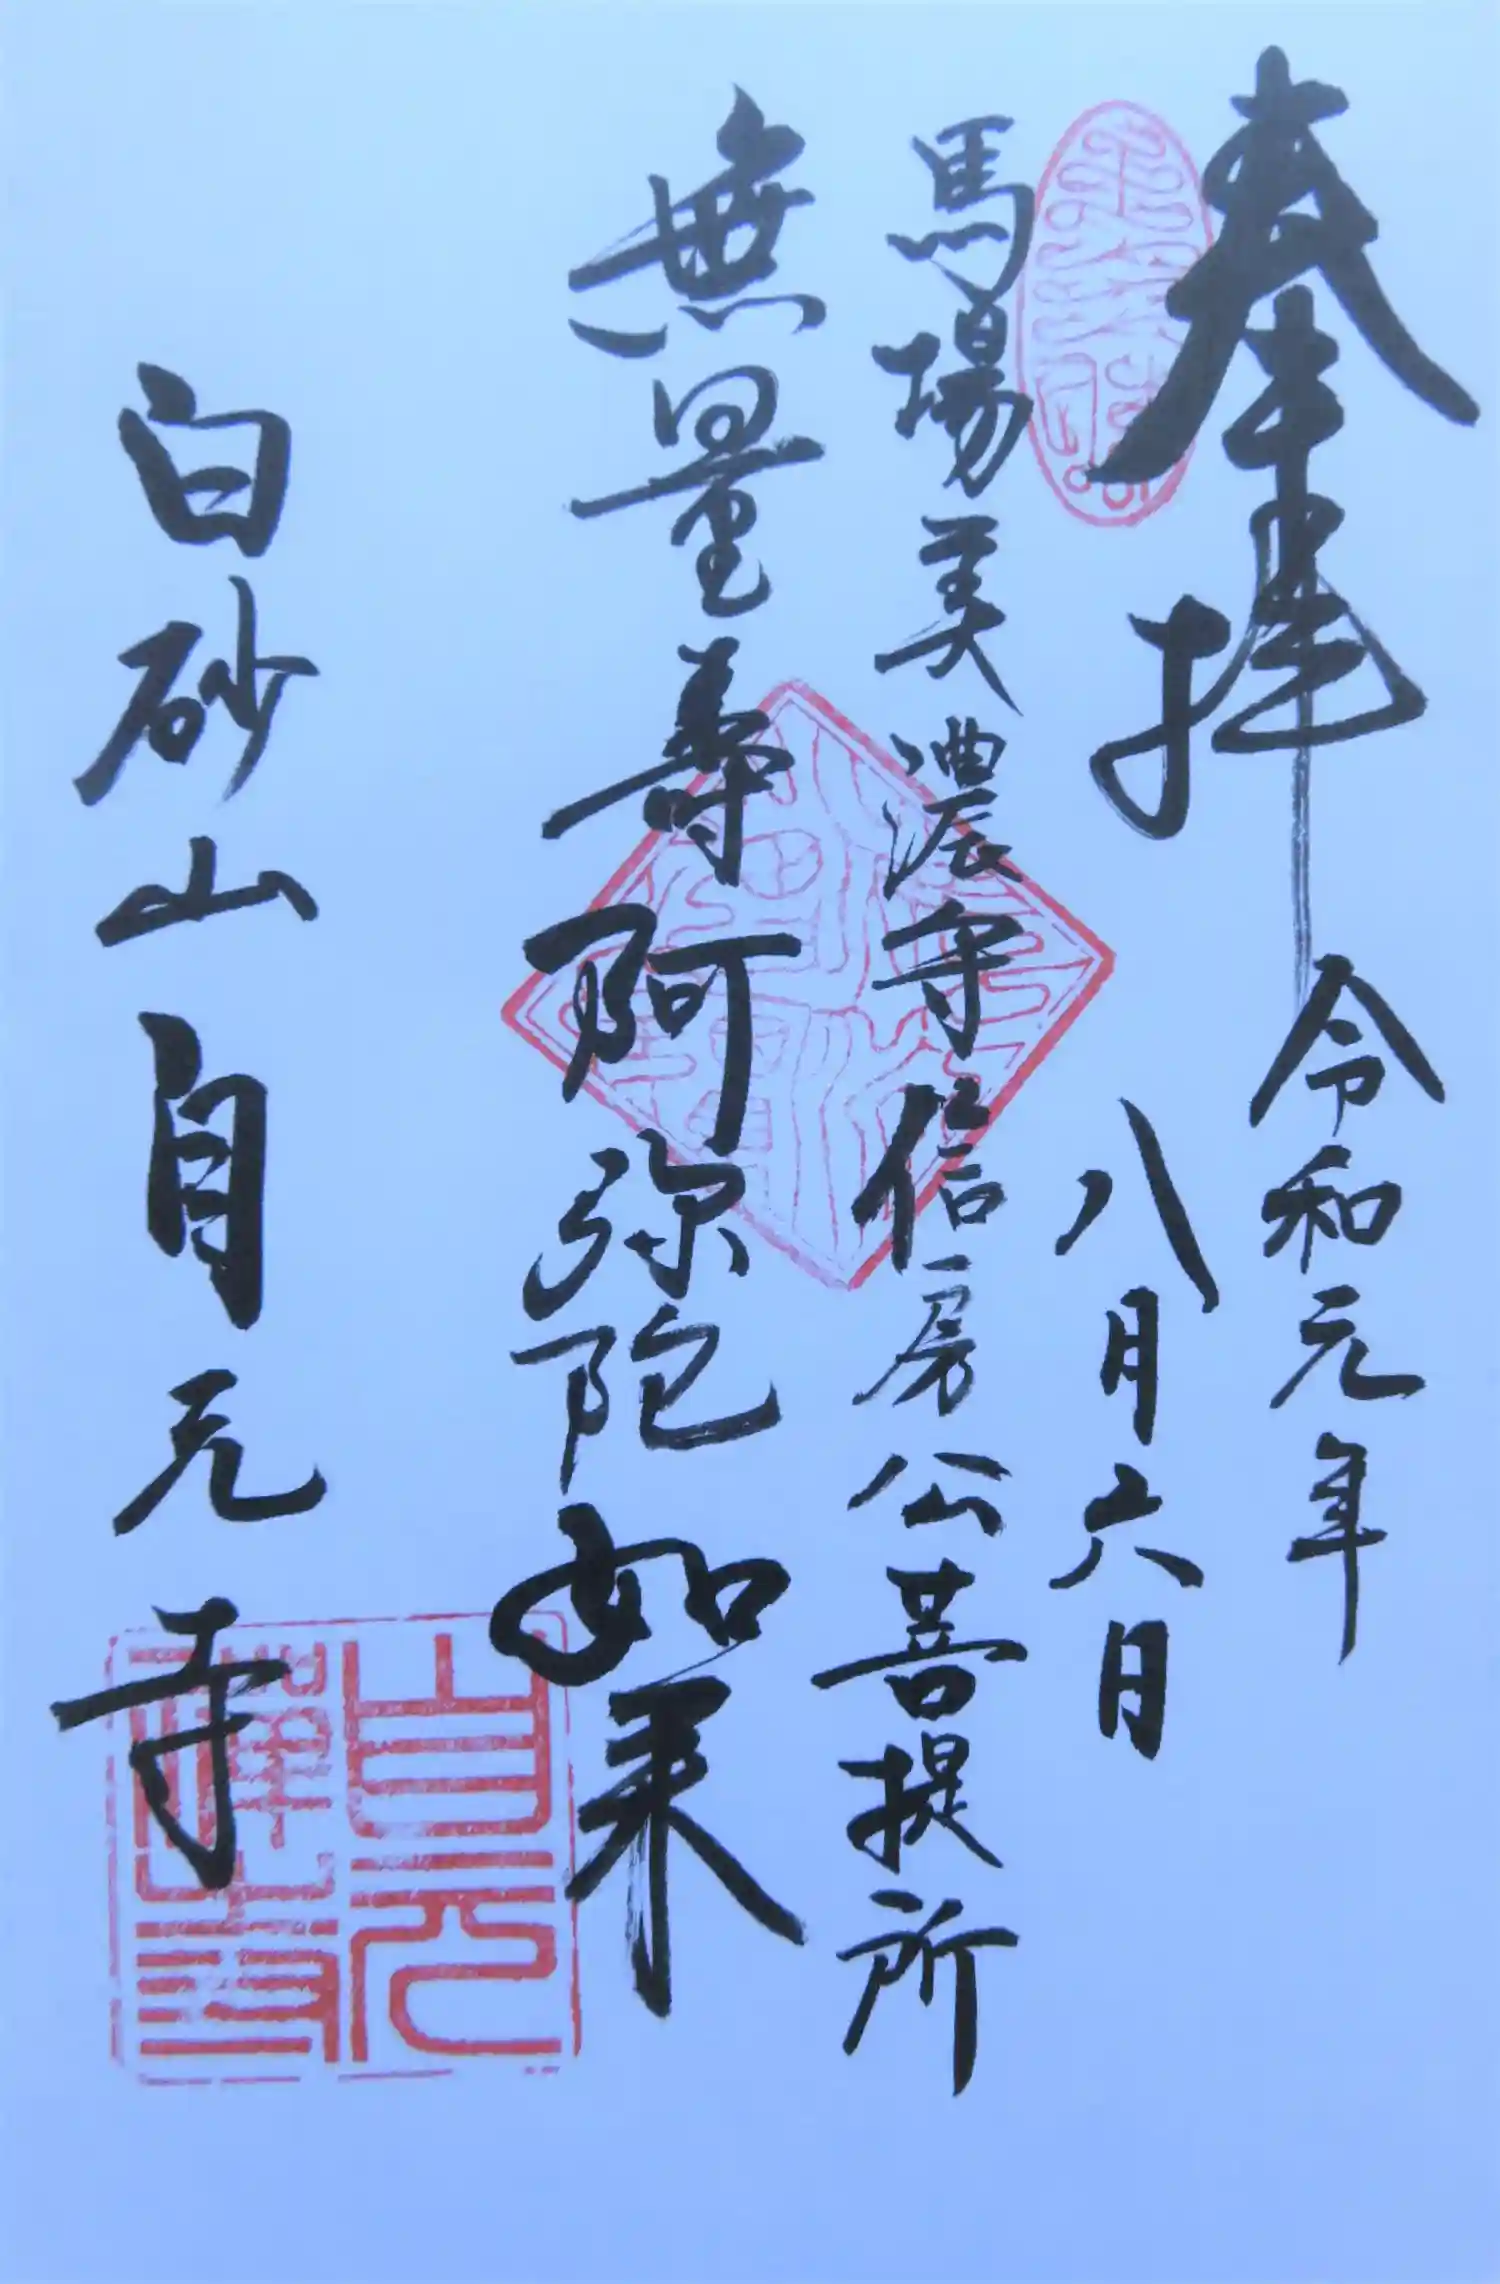 奉拝
令和元年
八月六日
馬場美濃守信房公菩提所
無量壽阿弥陀如来
白砂山自元寺
自元禅寺